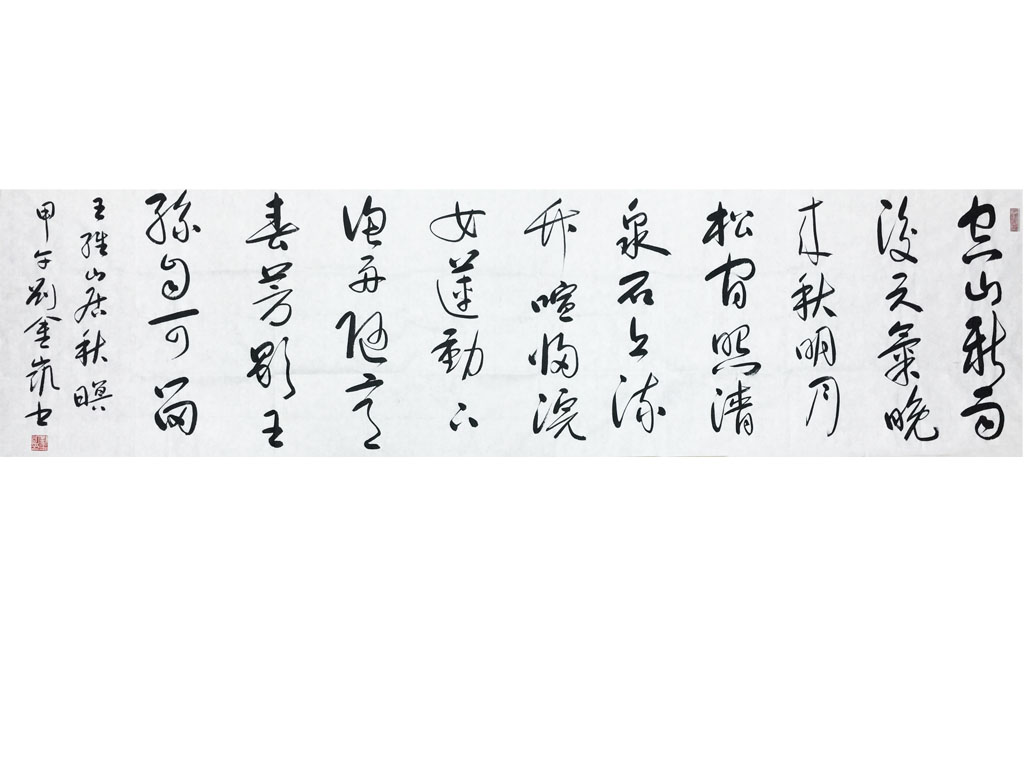 空山新雨
後天氣晚
来秋明月
松間照清
泉石上流
竹喧歸浣
女蓮動下
漁舟隨意
春芳歇王
孫自可留
王維山居秋暝
甲午劉金书